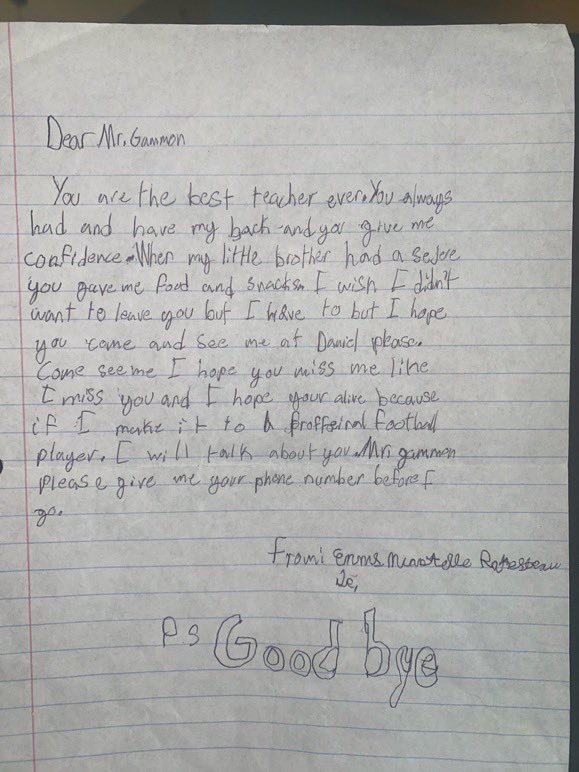 Dear Mr. Gammon
You are the best teacher ever. You always
had and have my back and you give me
confidence. When my little brother had a sejere
you gave me food and snacks. I wish I didn't
want to leave you but I have to but I hope
you come and see me at Daniel please.
Come see me I hope you miss me like
I miss you and I hope your alive because
if I make it to a proffeinal football
player. I will talk about you. Mr. gammon
please give me your phone number before I
go.
From:
PS Good bye